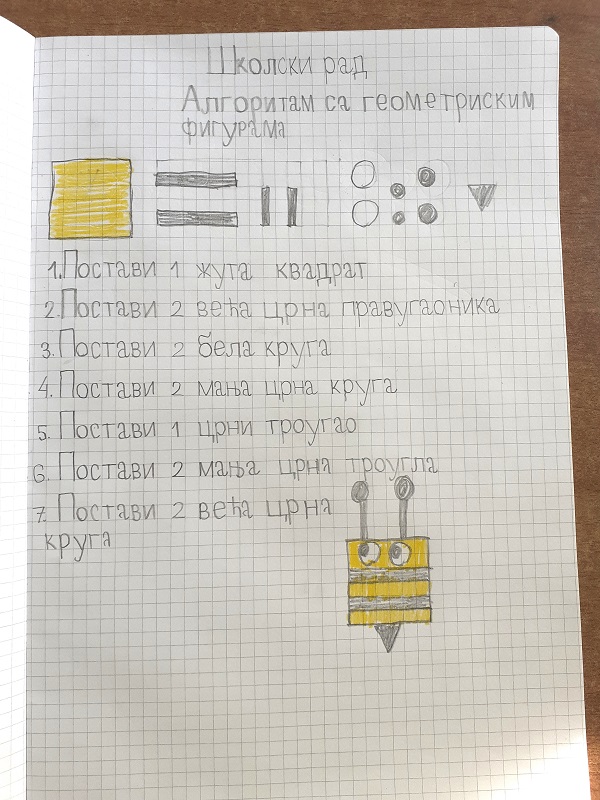 Школски рад
Алгоритам са геометриским
фигурама
1. Постави 1 жута квадрат
2. Постави 2 већа црна правугаоника
3. Постави 2 бела круга
4. Постави 2 мања црна круга
5. Постави 1 црни троугао
6. Постави 2 мања црна троугла
7. Постави 2 већа црна
круга